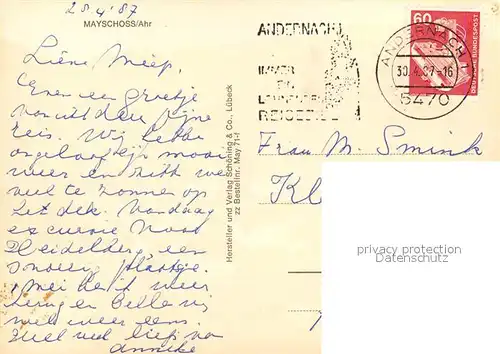 28/4/87
MAYSCHOSS/Ahr
Lieve Miep,
Even een groetje
vanuit den Rijn
reis. Wij hebben
ongelooflijk mooi
weer en zitten
veel te zonnen op
het dek. Vandaag
excursie naar
Heidelberg een
plaatje.
weer
terug en bellen wij
wel weer eens.
Heel veel liefs van
Anneke
Hersteller und Verlag Schöning & Co., Lübeck
zz Bestellnr. May 71-f
ANDERNACH
IMMER
EIN
REISEZIEL
ANDERNACH 1
30.4.87-16
5470
60
DEUTSCHE BUNDESPOST
Frau M. Smink
Kl
privacy protection
Datenschutz